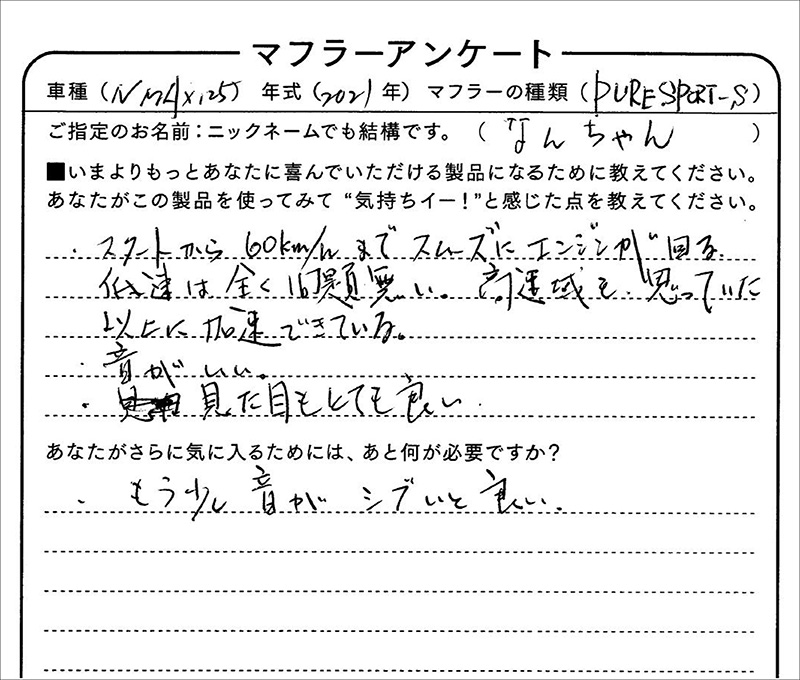 マフラーアンケート
車種（NMAX125） 年式（2021年） マフラーの種類（PURESPORT-S）
ご指定のお名前：ニックネームでも結構です。（ なんちゃん ）
■いまよりもっとあなたに喜んでいただける製品になるために教えてください。
あなたがこの製品を使ってみて“気持ちイー！”と感じた点を教えてください。
・スタートから60km/hまでスムーズにエンジンが回る。
低速は全く問題無い。高速域も思っていた
以上に加速できている。
・音がいい。
・見た目もとても良い.
あなたがさらに気に入るためには、あと何が必要ですか？
・もう少し音がシブいと良い.